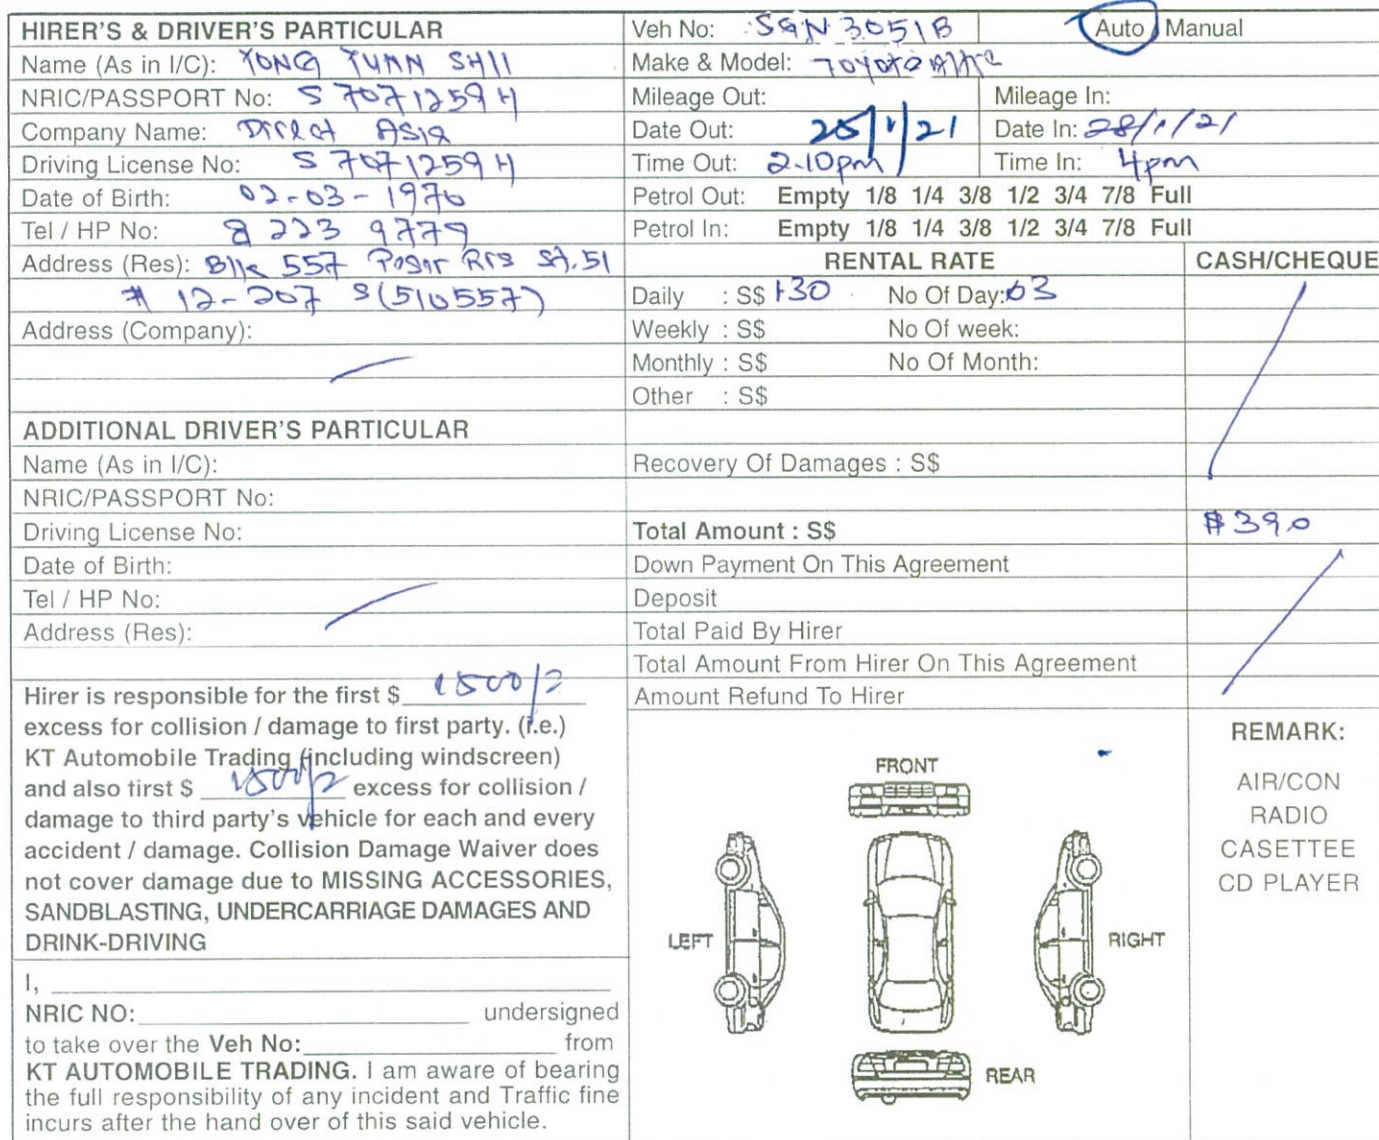 HIRER'S & DRIVER'S PARTICULAR
Name (As in I/C): YONG YUNN SHII
NRIC/PASSPORT No: S7071259H
Company Name: Direct Asia
Driving License No: S7071259H
Date of Birth: 02-03-1970
Tel / HP No: 8223 9779
Address (Res): Blk 557 Pasir Ris St. 51
# 12-207 S(510557)
Address (Company):
ADDITIONAL DRIVER'S PARTICULAR
Name (As in I/C):
NRIC/PASSPORT No:
Driving License No:
Date of Birth:
Tel / HP No:
Address (Res):
Hirer is responsible for the first $ 1500/2
excess for collision / damage to first party. (i.e.)
KT Automobile Trading (including windscreen)
and also first $ 1500/2 excess for collision /
damage to third party's vehicle for each and every
accident / damage. Collision Damage Waiver does
not cover damage due to MISSING ACCESSORIES,
SANDBLASTING, UNDERCARRIAGE DAMAGES AND
DRINK-DRIVING
I,
NRIC NO: undersigned
to take over the Veh No: from
KT AUTOMOBILE TRADING. I am aware of bearing
the full responsibility of any incident and Traffic fine
incurs after the hand over of this said vehicle.
Veh No: SGN 3051B Auto / Manual
Make & Model: Toyota
Mileage Out: Mileage In:
Date Out: 25/1/21 Date In: 28/1/21
Time Out: 2.10pm Time In: 4pm
Petrol Out: Empty 1/8 1/4 3/8 1/2 3/4 7/8 Full
Petrol In: Empty 1/8 1/4 3/8 1/2 3/4 7/8 Full
RENTAL RATE CASH/CHEQUE
Daily : S$ 130 No Of Day: 03
Weekly : S$ No Of week:
Monthly : S$ No Of Month:
Other : S$
Recovery Of Damages : S$
Total Amount : S$ $390
Down Payment On This Agreement
Deposit
Total Paid By Hirer
Total Amount From Hirer On This Agreement
Amount Refund To Hirer
FRONT
LEFT
RIGHT
REAR
REMARK:
AIR/CON
RADIO
CASETTEE
CD PLAYER